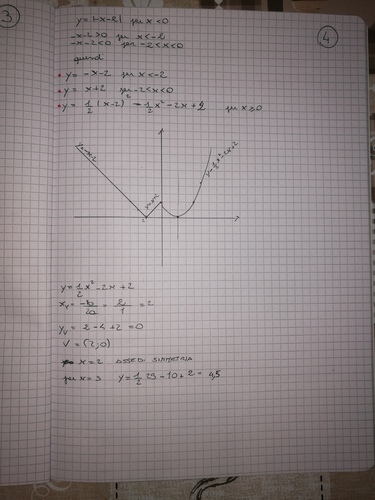 3
4
y = |-x-2| per x<0
-x-2>0 per x<-2
-x-2<0 per -2<x<0
quindi
• y = -x-2 per x<-2
• y = x+2 per -2<x<0
• y = 1/2 (x-2)² = 1/2 x² - 2x + 2 per x≥0
y=-x-2
y=x+2
y=1/2x²-2x+2
y = 1/2 x² - 2x + 2
xv = -b/2a = 2/1 = 2
yv = 2-4+2 = 0
V = (2,0)
x=2 ASSE DI SIMMETRIA
per x=5 y = 1/2 25 - 10 + 2 = 4,5